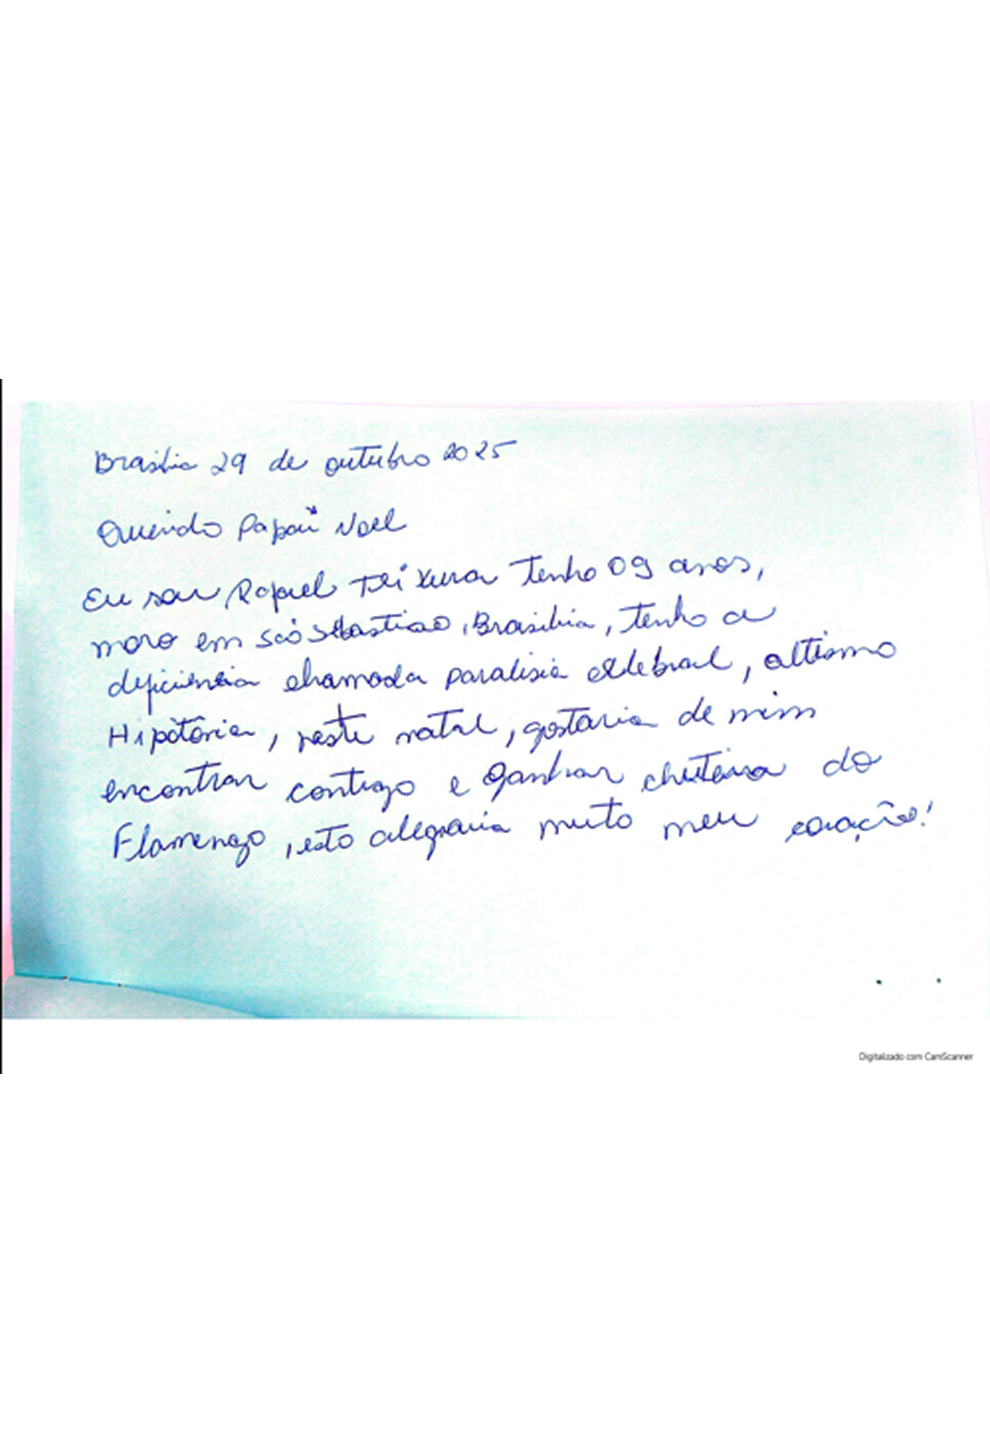 Brasília 29 de outubro 2025
Querido Papai Noel
Eu sou Rafael Teixeira tenho 09 anos,
moro em São Sebastiao, Brasilia, tenho a
deficiência chamada paralisia celebral, altismo
Hipotônia, neste natal, gostaria de mim
encontrar contigo e ganhar chuteira do
Flamengo, isto alegraria muito meu coração!
Digitalizado com CamScanner